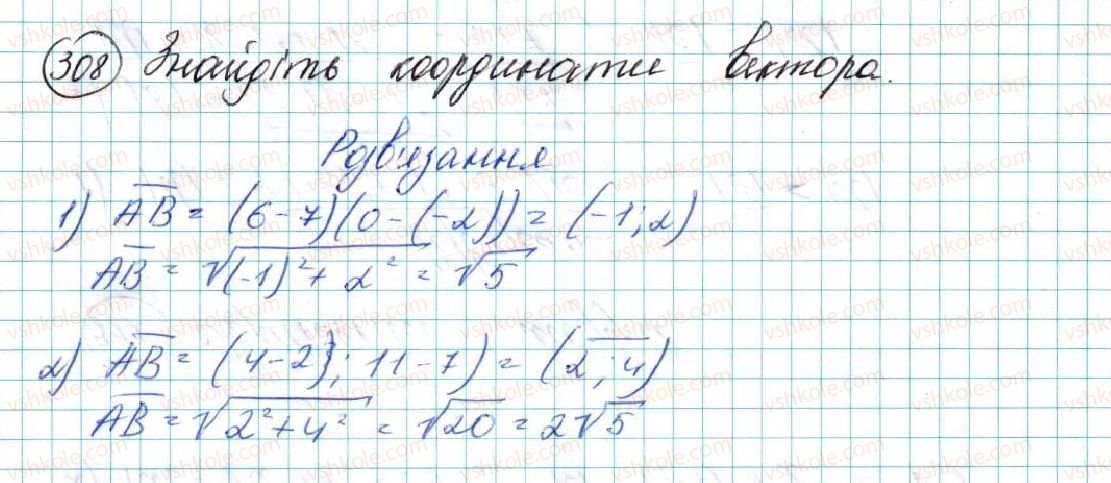 308 Знайдіть координати вектора.
Розв'язання
1) AB = (6-7)(0-(-2)) = (-1; 2)
AB = √(-1)² + 2² = √5
2) AB = (4-2); 11-7) = (2; 4)
AB = √2²+4² = √20 = 2√5